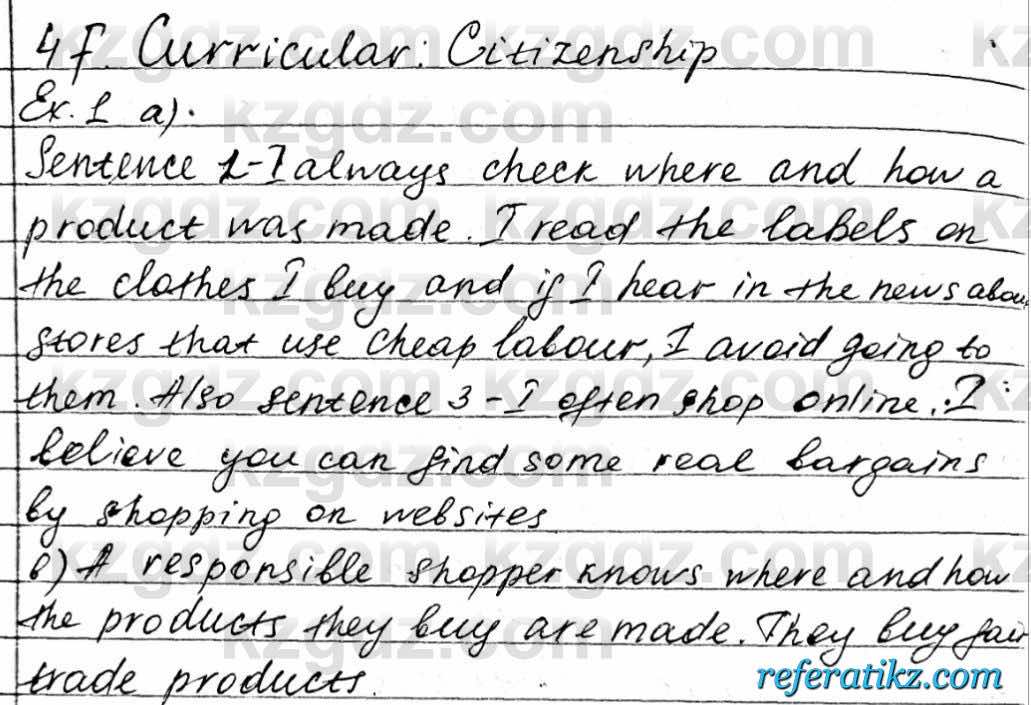 4f. Curricular: Citizenship
Ex. 1 a).
Sentence 1-I always check where and how a
product was made. I read the labels on
the clothes I buy and if I hear in the news abou
stores that use cheap labour, I avoid going to
them. Also sentence 3 - I often shop online. I
believe you can find some real bargains
by shopping on websites
b) A responsible shopper knows where and how
the products they buy are made. They buy fair
trade products.
referatikz.com
kzgdz.com